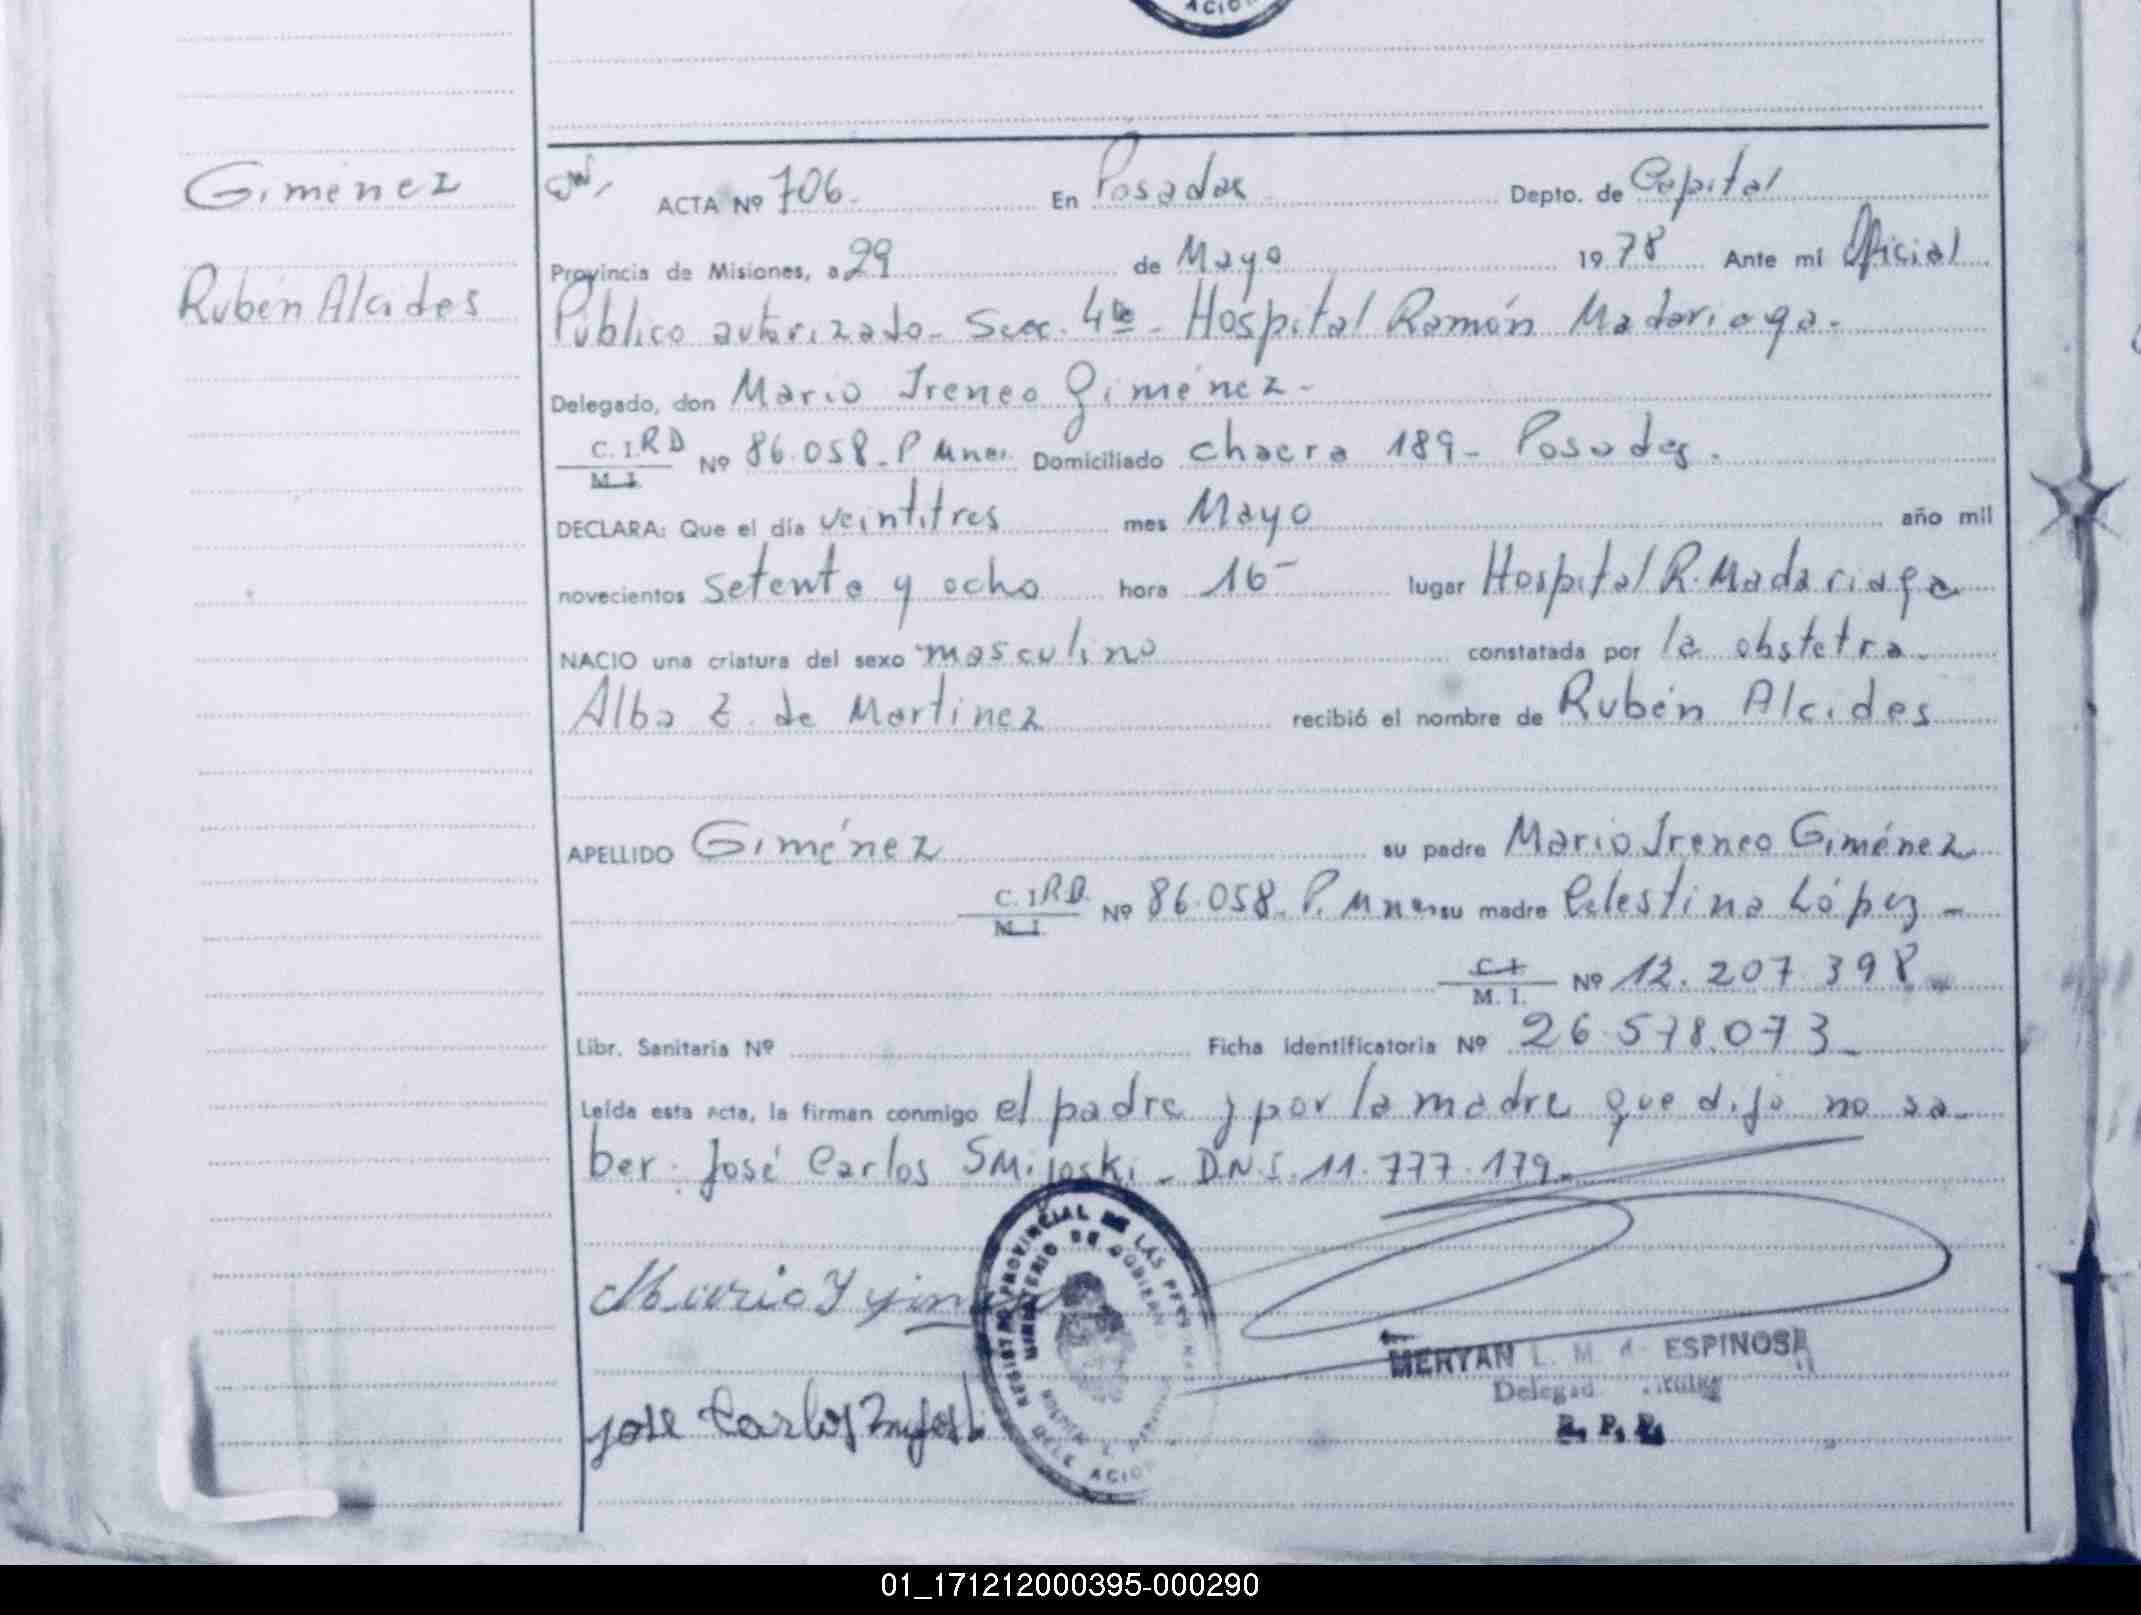 ACIO
Giménez
Rubén Alcides
ACTA Nº 706- En Posadas Depto. de Capital
Provincia de Misiones, a 29 de Mayo 1978 Ante mi Oficial
Público autorizado- Secc. 4ta - Hospital Ramón Madariaga-
Delegado, don Mario Ireneo Giménez-
C. I. RD
M. I. Nº 86.058- P Mnes. Domiciliado chacra 189- Posadas.
DECLARA: Que el día veintitres mes Mayo año mil
novecientos Setenta y ocho hora 16- lugar Hospital R. Madariaga
NACIO una criatura del sexo masculino constatada por la obstetra
Alba E. de Martinez recibió el nombre de Rubén Alcides
APELLIDO Giménez su padre Mario Ireneo Giménez
C. I. RD.
M. I. Nº 86.058- P. Mnes. su madre Celestina López-
C. I.
M. I. Nº 12.207.398-
Libr. Sanitaria Nº Ficha identificatoria Nº 26.578.073-
Leída esta acta, la firman conmigo el padre y por la madre que dijo no sa-
ber. José Carlos Smijoski- D.N.I. 11.777.179-
REGISTRO PROVINCIAL DE LAS PERSONAS
MINISTERIO DE GOBIERNO
Mario Y Gimenez
MERYAN L. M. ESPINOSA
Delegad Titular
R. P. P.
Jose Carlos
DELE ACIO
01_171212000395-000290